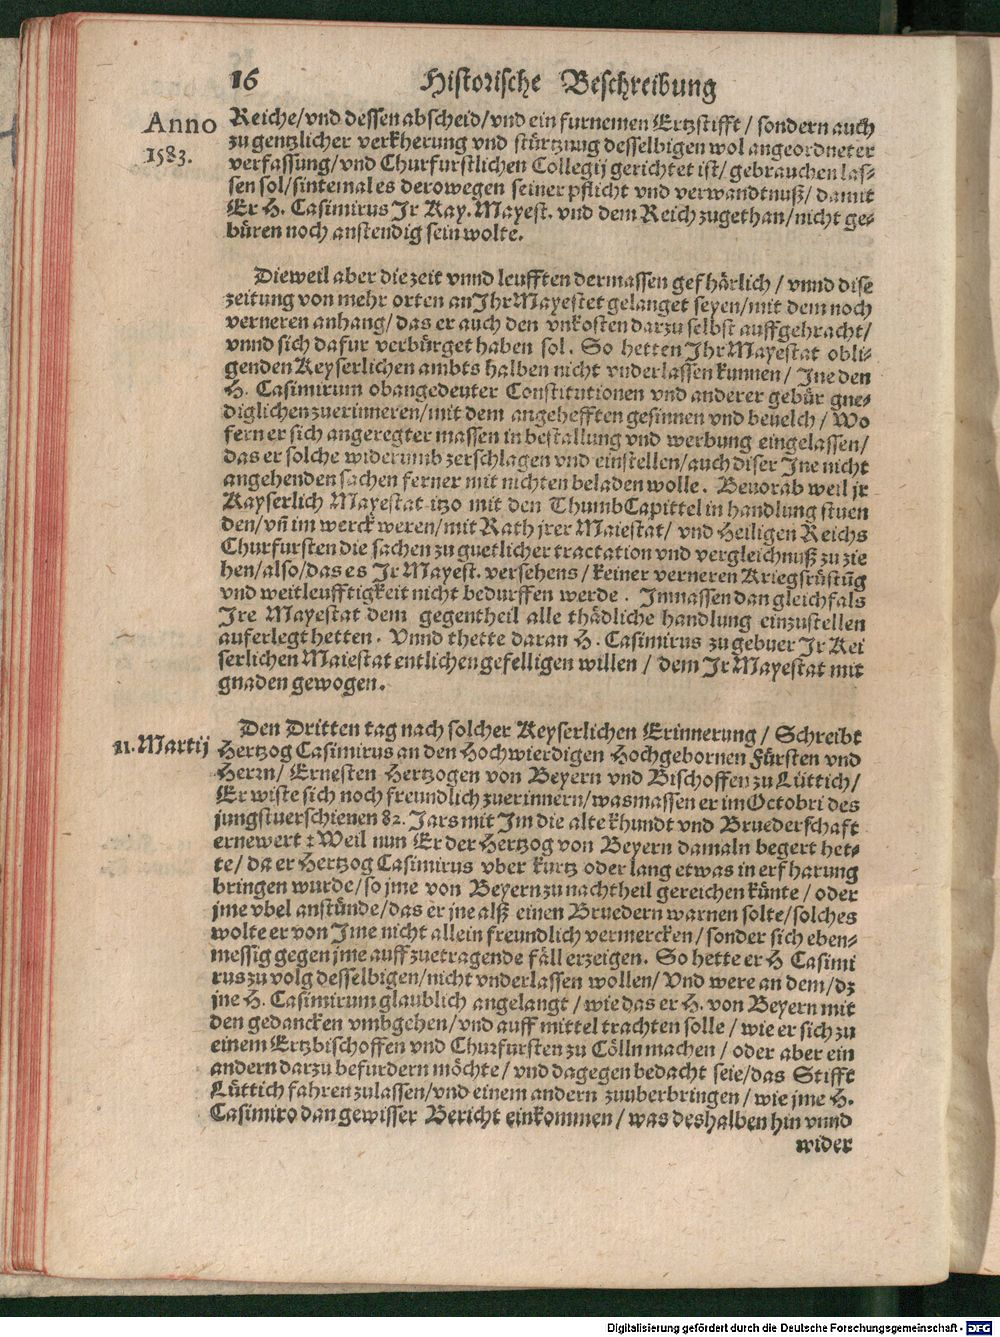 16 Historische Beschreibung
Anno
1583.
Reiche/vnd dessen abscheid/vnd ein furnemen Ertzstifft/ sondern auch
zu gentzlicher verkherung vnd stürtzung desselbigen wol angeordneter
verfassung/vnd Churfurstlichen Collegij gerichtet ist/ gebrauchen las-
sen sol/sintemal es derowegen seiner pflicht vnd verwandtnuß/ damit
Er H. Casimirus Jr Kay. Mayest. vnd dem Reich zugethan/nicht ge-
büren noch anstendig sein wolte.
Dieweil aber die zeit vnnd leufften dermassen gefhärlich / vnnd dise
zeitung von mehr orten an Jhr Mayestet gelanget seyen/mit dem noch
verneren anhang/das er auch den vnkosten darzu selbst auffgebracht/
vnnd sich dafur verbürget haben sol. So hetten Jhr Mayestat obli-
genden Keyserlichen ambts halben nicht vnderlassen kunnen/ Jne den
H. Casimirum obangedeuter Constitutionen vnd anderer gebür gne-
diglichen zuerinneren/mit dem angehefften gesinnen vnd beuelch/ Wo
fern er sich angeregter massen in bestallung vnd werbung eingelassen/
das er solche widerumb zerschlagen vnd einstellen/auch diser Jne nicht
angehenden sachen ferner mit nichten beladen wolle. Beuorab weil jr
Kayserlich Mayestat itzo mit den ThumbCapittel in handlung stuen
den/vñ im werck weren/mit Rath jrer Maiestat/ vnd Heiligen Reichs
Churfursten die sachen zu guetlicher tractation vnd vergleichnuß zu zie
hen/also/das es Jr Mayest. versehens/ keiner verneren Kriegsrüstũg
vnd weitleufftigkeit nicht bedurffen werde. Jnmassen dan gleichfals
Jre Mayestat dem gegentheil alle thädliche handlung einzustellen
auferlegt hetten. Vnnd thette daran H. Casimirus zu gebuer Jr Kei
serlichen Maiestat entlichen gefelligen willen/ dem Jr Mayestat mit
gnaden gewogen.
11. Martij
Den Dritten tag nach solcher Keyserlichen Erinnerung/ Schreibt
Hertzog Casimirus an den Hochwierdigen Hochgebornen Fürsten vnd
Herrn/ Ernesten Hertzogen von Beyern vnd Bischoffen zu Lüttich/
Er wiste sich noch freundlich zuerinnern/wasmassen er im Octobri des
jungst verschienen 82. Jars mit Jm die alte khundt vnd Bruederschaft
ernewert: Weil nun Er der Hertzog von Beyern damaln begert het-
te/ da er Hertzog Casimirus vber kurtz oder lang etwas in erfharung
bringen wurde/so jme von Beyern zu nachtheil gereichen künte/ oder
jme vbel anstünde/das er jne alß einen Bruedern warnen solte/solches
wolte er von Jme nicht allein freundlich vermercken/sonder sich eben-
messig gegen jme auff zuetragende fäll erzeigen. So hette er H Casimi
rus zu volg desselbigen/nicht vnderlassen wollen/ Vnd were an dem/dz
jne H. Casimirum glaublich angelangt/ wie das er H. von Beyern mit
den gedancken vmbgehen/vnd auff mittel trachten solle/ wie er sich zu
einem Ertzbischoffen vnd Churfursten zu Cölln machen/ oder aber ein
andern darzu befurdern möchte/ vnd dagegen bedacht seie/das Stifft
Lüttich fahren zulassen/vnd einem andern zuuberbringen/ wie jme H.
Casimiro dan gewisser Bericht einkommen/ was deshalben hin vnnd
wider
Digitalisierung gefördert durch die Deutsche Forschungsgemeinschaft - DFG